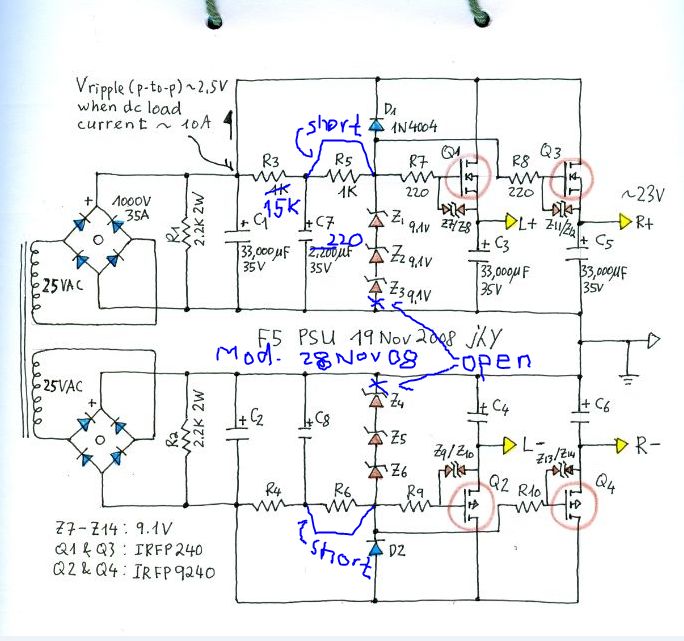 Vripple (p-to-p) ~ 2,5V
when dc load
current ~ 10A
D1
1N4004
short
R3
1K
15K
R5
1K
R7
220
Q1
R8
220
Q3
~23V
1000V
35A
+
R1
2.2K 2W
+ C1
33,000µF
35V
+ C7
2,200µF
220
35V
Z1 9,1V
Z2 9,1V
Z3 9,1V
Z7/Z8
L+
+ C3
33,000µF
35V
Z11/Z12
R+
+ C5
33,000µF
35V
25VAC
F5 PSU 19 Nov 2008 jXY
Mod. 28 Nov 08
open
25VAC
+
R2
2.2K 2W
+ C2
+ C8
Z4
Z5
Z6
+ C4
+ C6
Z9/Z10
L-
Z13/Z14
R-
R4
R6
R9
Q2
R10
Q4
short
D2
Z7-Z14 : 9.1V
Q1 & Q3 : IRFP240
Q2 & Q4 : IRFP9240